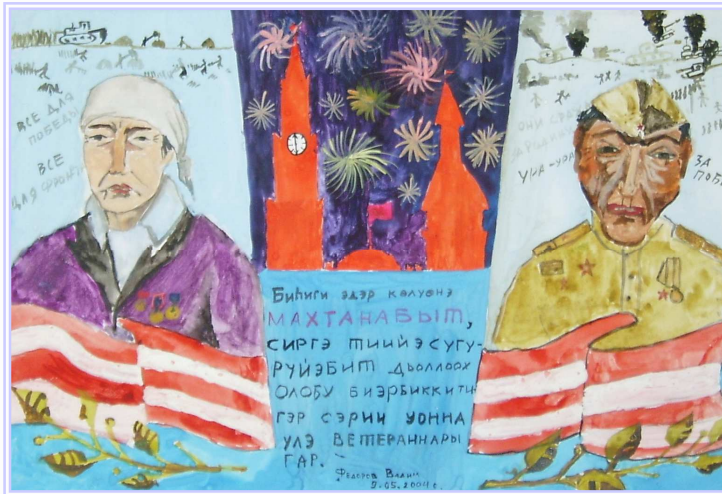 ВСЕ ДЛЯ
ПОБЕДЫ
ВСЕ
ДЛЯ ФРОНТА
ОНИ
УРА-УРА
ЗА
Биһиги эдэр көлүөнэ
МАХТАНАБЫТ,
СИРГЭ ТИИЙЭ СУГУ-
РУЙЭБИТ дьоллоох
ОЛОБУ БИЭРБИККИТИ-
ГЭР СЭРИИ УОННА
УЛЭ ВЕТЕРАННАРЫ
ГАР.
Федоров Вадим